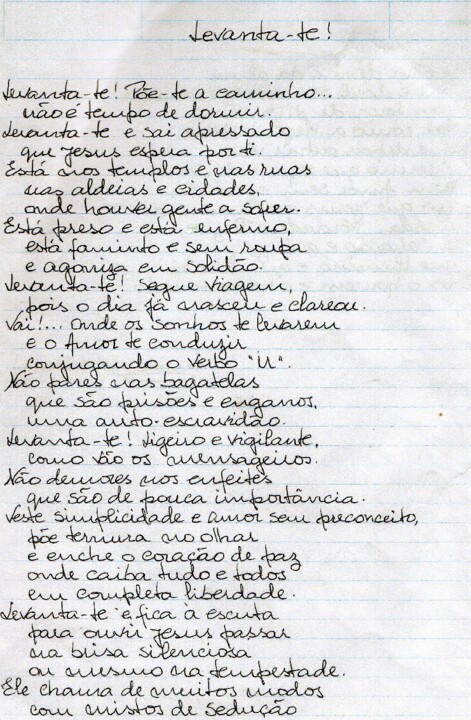 Levanta-te!
Levanta-te! Põe-te a caminho...
não é tempo de dormir.
Levanta-te e sai apressado
que Jesus espera por ti.
Está nos templos e nas ruas
nas aldeias e cidades,
onde houver gente a sofrer.
Está preso e está enfermo,
está faminto e sem roupa
e agoniza em solidão.
Levanta-te! Segue viagem,
pois o dia já nasceu e clareou.
Vai!... Onde os sonhos te levarem
e o Amor te conduzir
conjugando o verbo "ir".
Não pares nas bagatelas
que são prisões e enganos,
uma auto-escravidão.
Levanta-te! Ligeiro e vigilante,
como vão os mensageiros.
Não demores nos enfeites
que são de pouca importância.
Veste simplicidade e amor sem preconceito,
põe ternura no olhar
e enche o coração de paz
onde caiba tudo e todos
em completa liberdade.
Levanta-te e fica à escuta
para ouvir Jesus passar
na brisa silenciosa
ou mesmo na tempestade.
Ele chama de muitos modos
com mistos de sedução